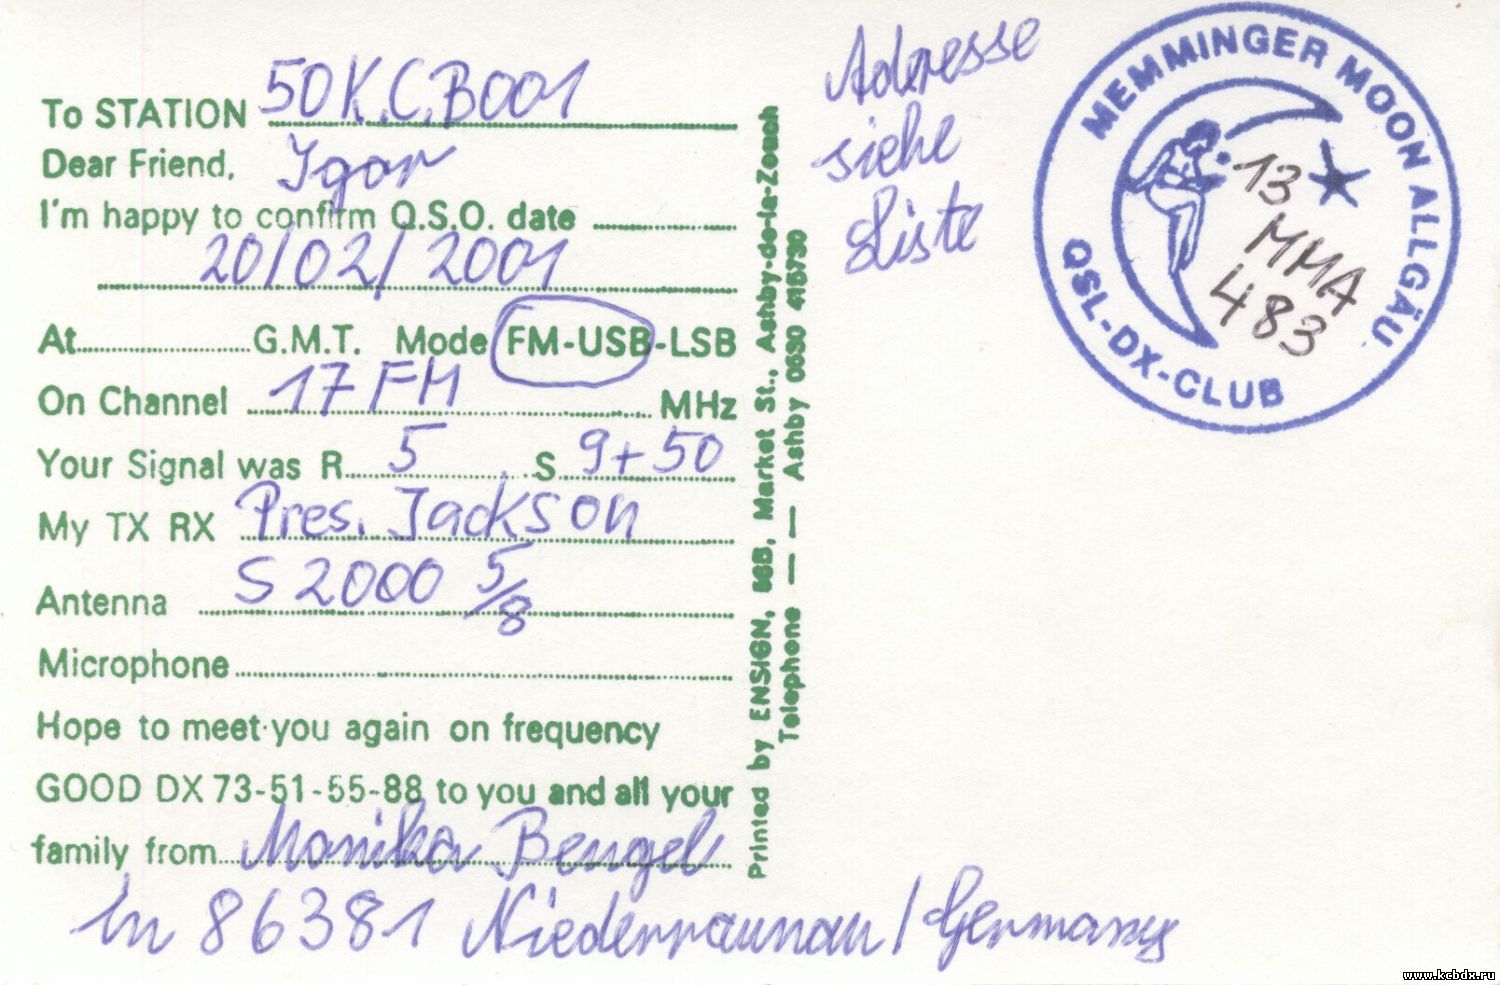 To STATION 50K.C.B001
Dear Friend, Igor
I'm happy to confirm Q.S.O. date
20/02/2001
At G.M.T. Mode FM-USB-LSB
On Channel 17 FM MHz
Your Signal was R 5 S 9+50
My TX RX Pres. Jackson
Antenna S 2000 5/8
Microphone
Hope to meet you again on frequency
GOOD DX 73-51-55-88 to you and all your
family from Monika Bengel
in 86381 Niederraunau/Germany
Printed by ENSIGN, 56B, Market St., Ashby-de-la-Zouch
Telephone — — — Ashby 0530 415730
Adresse
siehe
Liste
MEMMINGER MOON ALLGÄU
QSL-DX-CLUB
13
MMA
483
www.kcbdx.ru